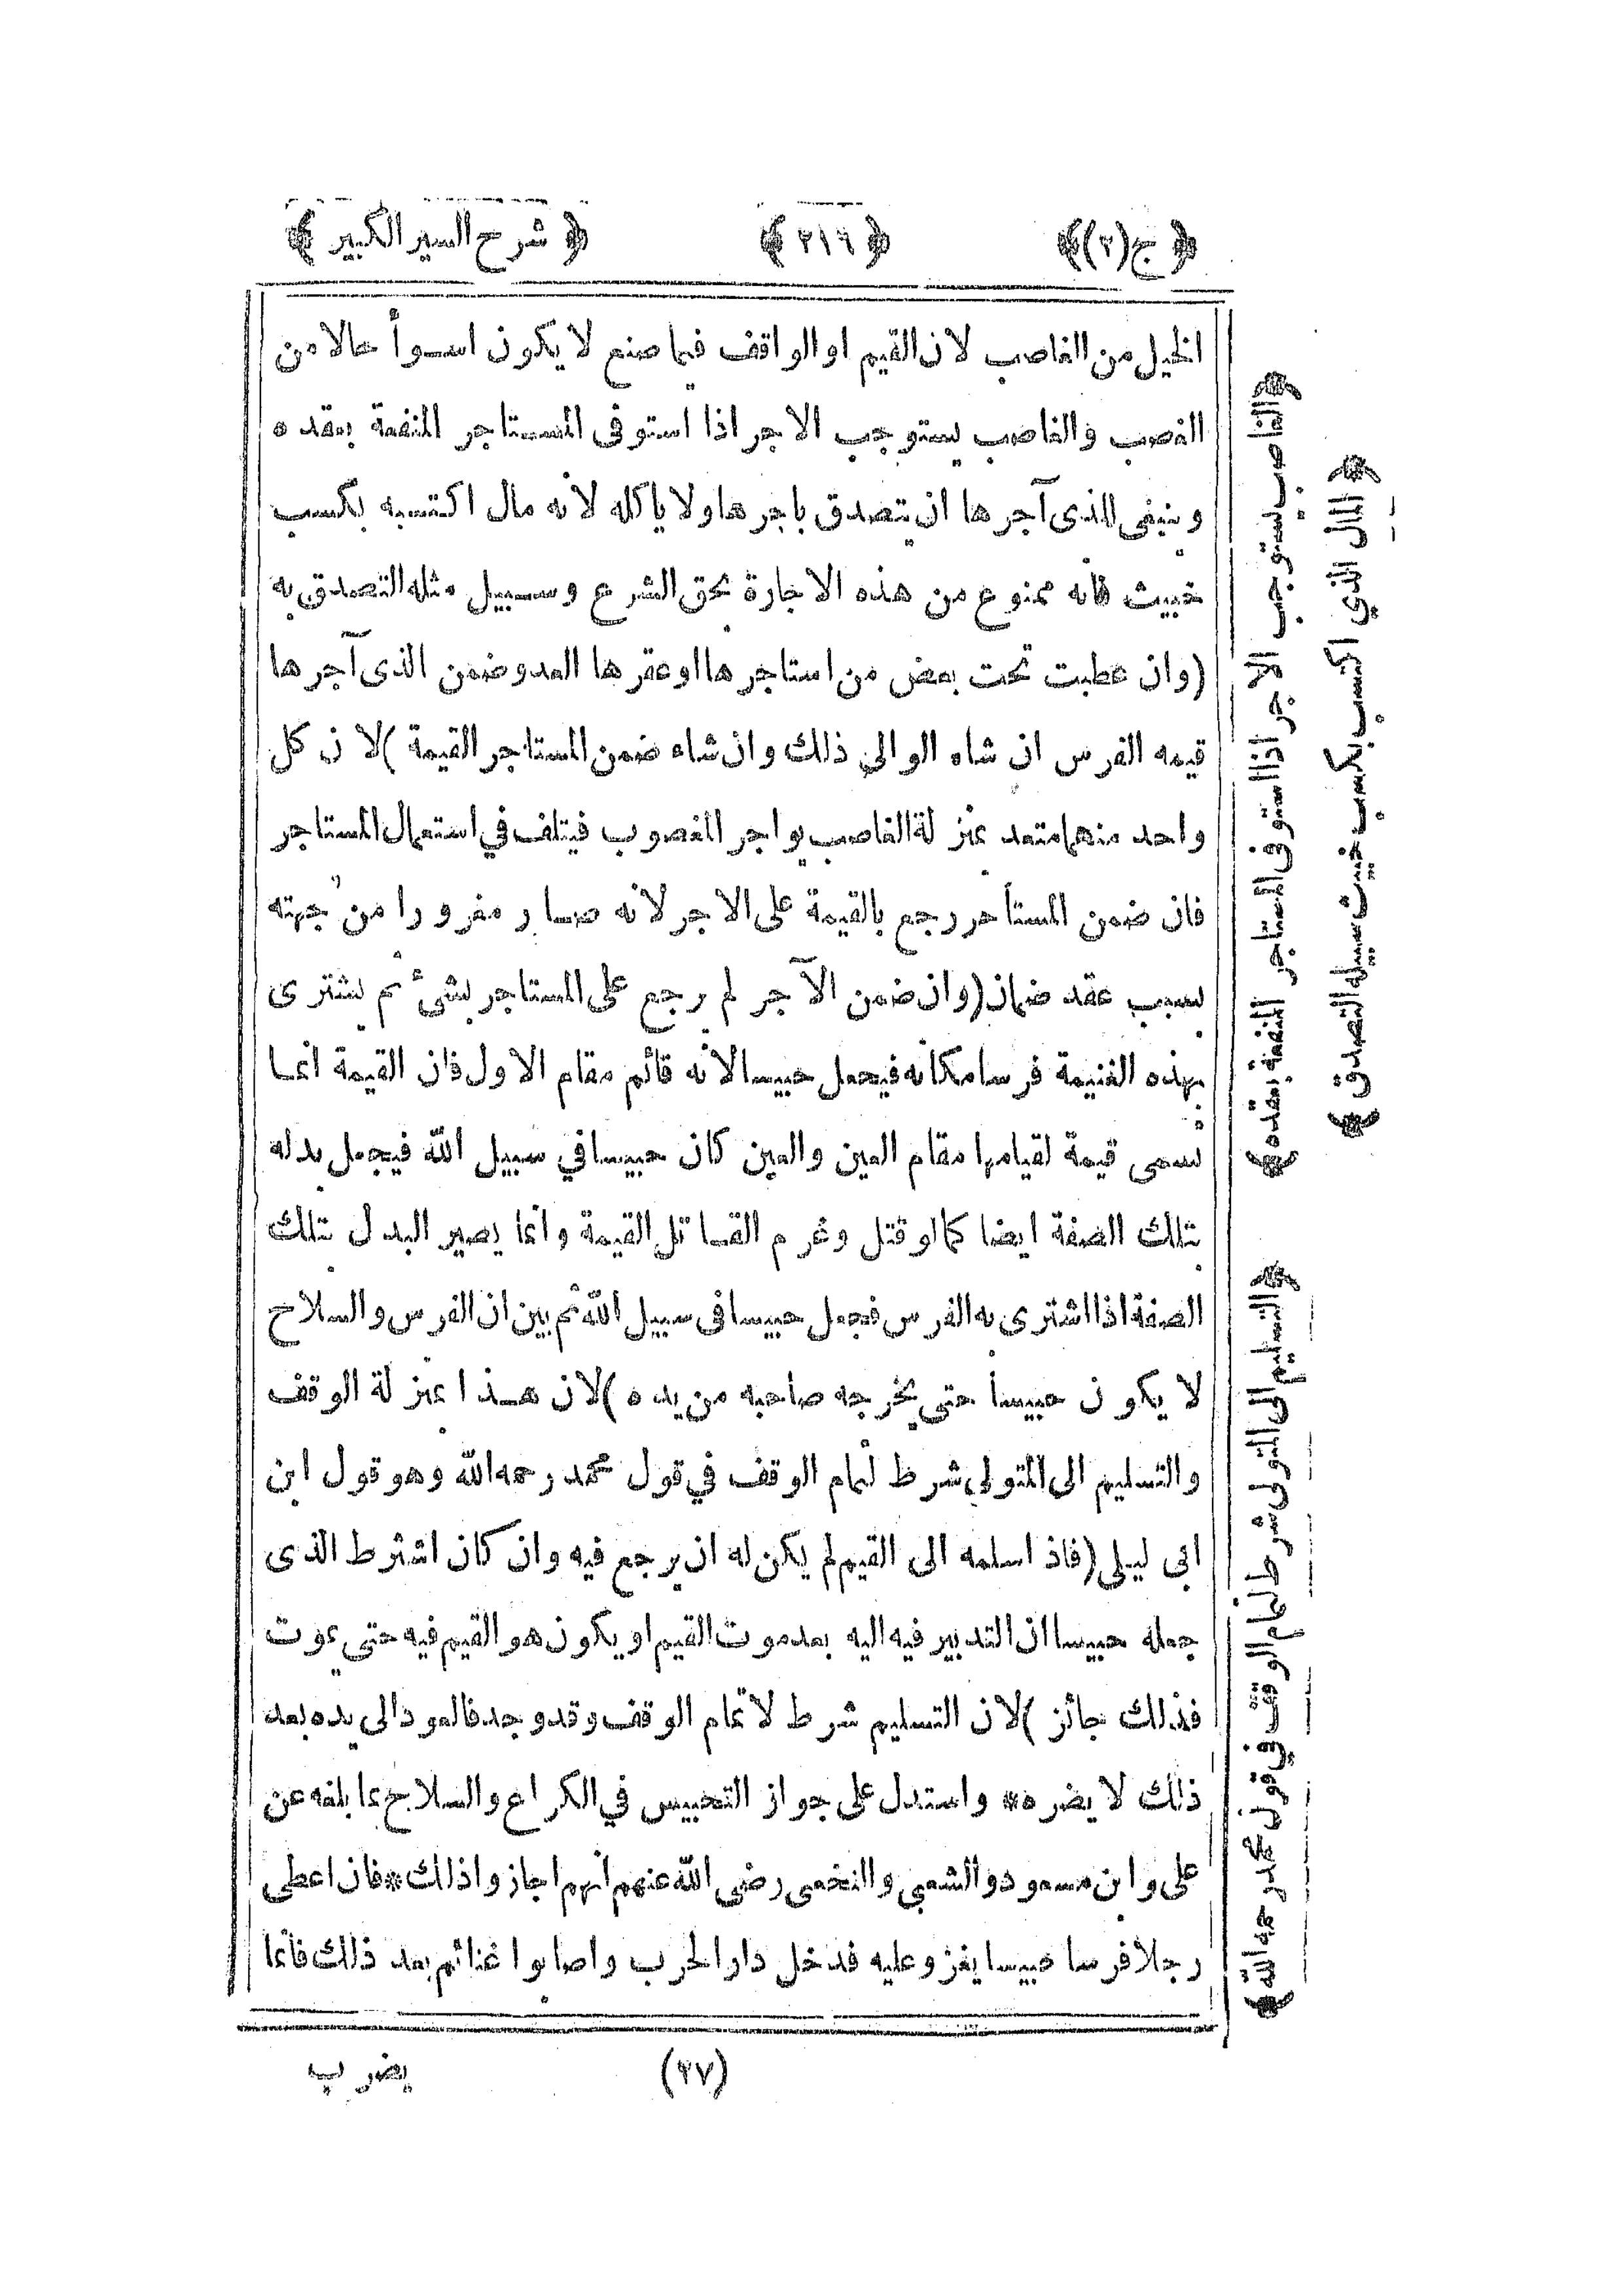 ﴿ ج(٢) ﴾ ﴿ ٢١٩ ﴾ ﴿ شرح السير الكبير ﴾
الخيل من الغاصب لان القيم او الواقف فيما صنع لا يكون اسوأ حالا من
الغصب والغاصب يستوجب الاجر اذا استوفى المستاجر المنفعة بعقده
وينبغى للذى آجرها ان يتصدق باجرها ولا ياكله لانه مال اكتسبه بكسب
خبيث فانه ممنوع من هذه الاجارة بحق الشرع وسبيل مثله التصدق به
(وان عطبت تحت بعض من استاجرها او عقرها العدو ضمن الذى آجرها
قيمه الفرس ان شاء الوالي ذلك وان شاء ضمن المستاجر القيمة) لان كل
واحد منهما متعد بمنزلة الغاصب يواجر المغصوب فيتلف في استعمال المستاجر
فان ضمن المستأجر رجع بالقيمة على الاجر لانه صار مغرورا من جهته
بسبب عقد ضمان (وان ضمن الآجر لم يرجع على المستاجر بشئ ثم يشترى
بهذه الغنيمة فرسا مكانه فيجعل حبيسا لانه قائم مقام الاول فان القيمة انما
تسمى قيمة لقيامها مقام العين والعين كان حبيسا في سبيل الله فيجعل بدله
بتلك الصفة ايضا كما لو قتل وغرم القاتل القيمة وانما يصير البدل بتلك
الصفة اذا اشترى به الفرس فجعل حبيسا فى سبيل الله ثم بين ان الفرس والسلاح
لا يكون حبيسا حتى يخرجه صاحبه من يده) لان هذا بمنزلة الوقف
والتسليم الى المتولي شرط لتمام الوقف في قول محمد رحمه الله وهو قول ابن
ابى ليلى (فاذا سلمه الى القيم لم يكن له ان يرجع فيه وان كان اشترط الذى
جعله حبيسا ان التدبير فيه اليه بعد موت القيم او يكون هو القيم فيه حتى يموت
فذلك جائز) لان التسليم شرط لاتمام الوقف وقد وجد فالعود الى يده بعد
ذلك لا يضره * واستدل على جواز التحبيس في الكراع والسلاح بما بلغه عن
على وابن مسعود والشعبي والنخعى رضي الله عنهم انهم اجازوا ذلك * فان اعطى
رجلا فرسا حبيسا يغزو عليه فدخل دار الحرب واصابوا غنائم بعد ذلك فانما
(٢٧) يضرب
﴿ والغاصب يستوجب الاجر اذا استوفى المستاجر المنفعة بعقده ﴾
﴿ المال الذي اكتسب بكسب خبيث سبيله التصدق ﴾
﴿ التسليم الى المتولى شرط لتمام الوقف في قول محمد رحمه الله ﴾